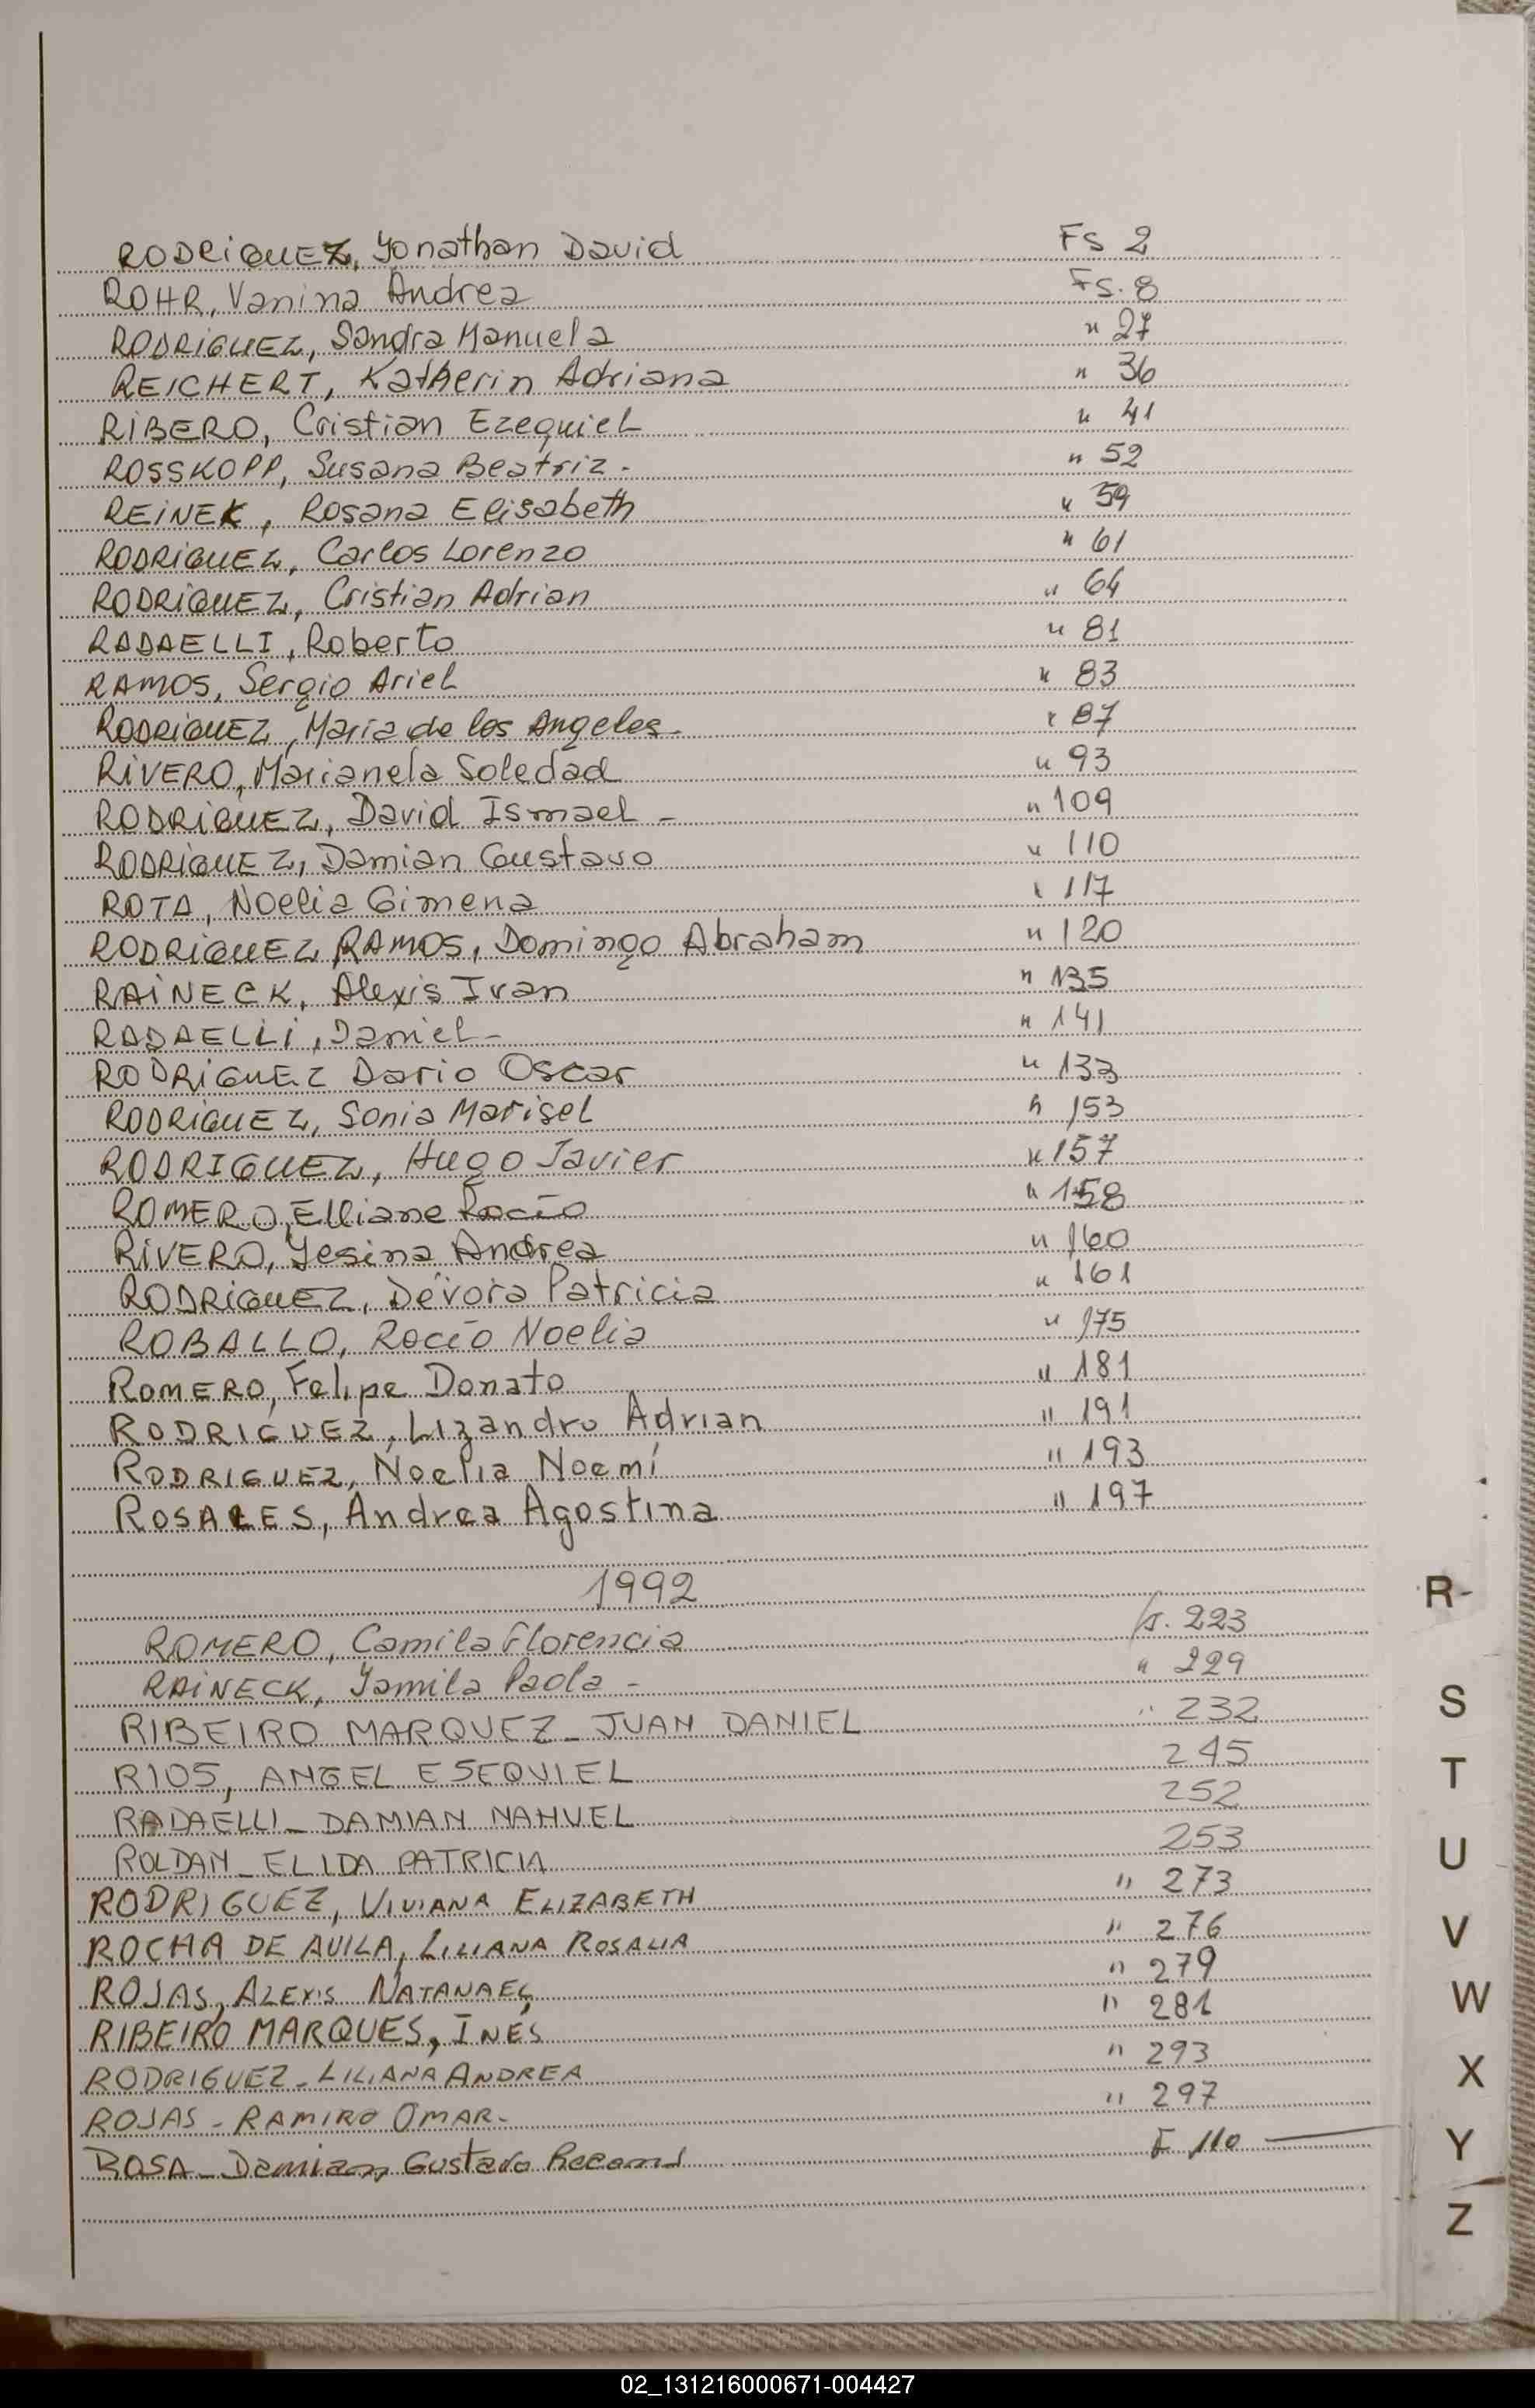 RODRIGUEZ, Yonathan David Fs 2
ROHR, Vanina Andrea Fs. 8
RODRIGUEZ, Sandra Manuela " 27
REICHERT, Katherin Adriana " 36
RIBERO, Cristian Ezequiel " 41
ROSSKOPP, Susana Beatriz - " 52
REINEK, Rosana Elisabeth " 59
RODRIGUEZ, Carlos Lorenzo " 61
RODRIGUEZ, Cristian Adrian " 64
RADAELLI, Roberto " 81
RAMOS, Sergio Ariel " 83
RODRIGUEZ, Maria de los Angeles - " 87
RIVERO, Marianela Soledad " 93
RODRIGUEZ, David Ismael - " 109
RODRIGUEZ, Damian Gustavo " 110
ROTA, Noelia Gimena " 117
RODRIGUEZ RAMOS, Domingo Abraham " 120
RAINECK, Alexis Ivan " 135
RADAELLI, Daniel - " 141
RODRIGUEZ Dario Oscar " 133
RODRIGUEZ, Sonia Marisel " 153
RODRIGUEZ, Hugo Javier " 157
ROMERO, Elliane Rocío " 158
RIVERO, Yesina Andrea " 160
RODRIGUEZ, Dévora Patricia " 161
ROBALLO, Rocío Noelia " 175
ROMERO, Felipe Donato " 181
RODRIGUEZ, Lizandro Adrian " 191
RODRIGUEZ, Noelia Noemí " 193
ROSALES, Andrea Agostina " 197
1992
ROMERO, Camila Florencia fs. 223
RAINECK, Yamila Paola - " 229
RIBEIRO MARQUEZ - JUAN DANIEL " 232
RIOS, ANGEL ESEQUIEL 245
RADAELLI - DAMIAN NAHUEL 252
ROLDAN - ELIDA PATRICIA 253
RODRIGUEZ, VIVIANA ELIZABETH " 273
ROCHA DE AVILA, LILIANA ROSALIA " 276
ROJAS, ALEXIS NATANAEL " 279
RIBEIRO MARQUES, INÉS " 281
RODRIGUEZ - LILIANA ANDREA " 293
ROJAS - RAMIRO OMAR - " 297
ROSA - Damian Gustavo F 110
R
S
T
U
V
W
X
Y
Z
02_131216000671-004427